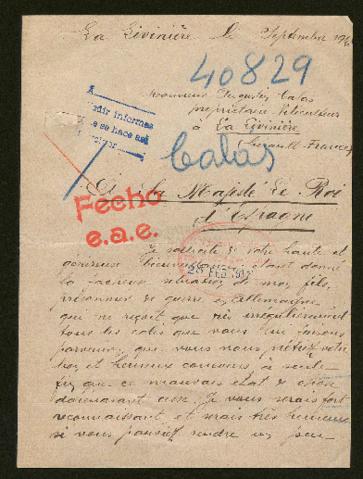 La Livinière le Septembre 191
40829
Monsieur Augustin Calas
propriétaire Viticulteur
à La Livinière
(Herault-France)
Pedir informes
se hace así
Calas
A Sa Majesté Le Roi
d'Espagne
Fecho
e.a.e.
Je sollicite de votre haute et
généreuse bienveillance, étant donné
la facheuse situation de mon fils,
prisonnier de guerre en Allemagne
qui ne reçoit que très irrégulièrement
tous les colis que nous lui faisons
parvenir, que vous nous prêtiez votre
et heureux concours à seule
fin que ce mauvais état de chose
Je vous serais fort
reconnaissant, et serais très heureux
si vous pouviez rendre un peu